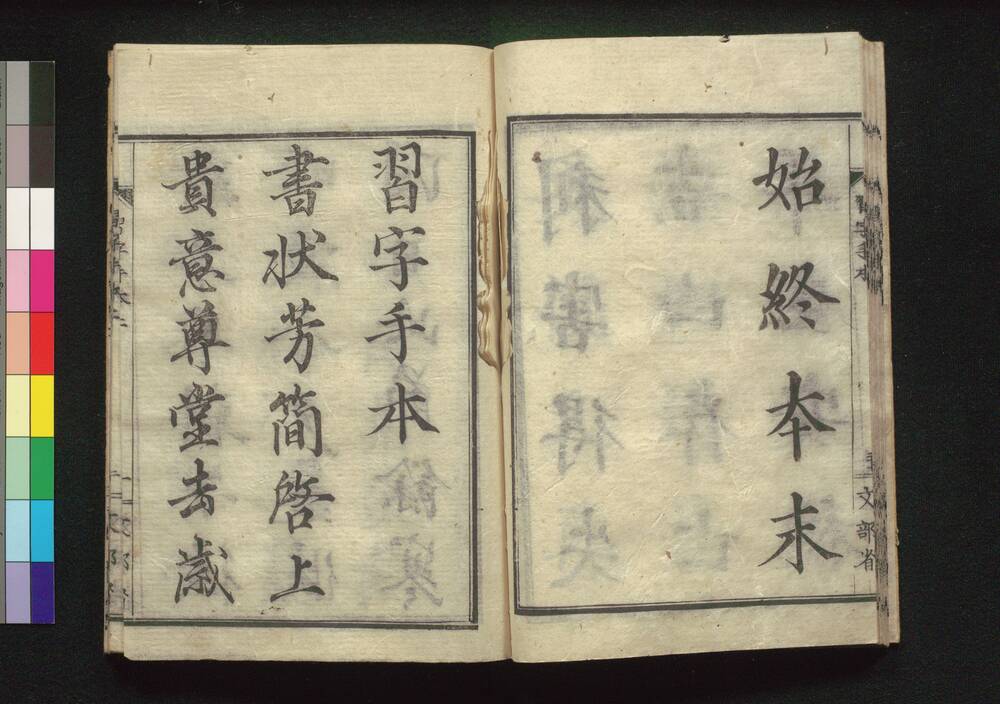 習字手本
文部省
始終本末
習字手本
書状芳簡啓上
貴意尊堂去歳